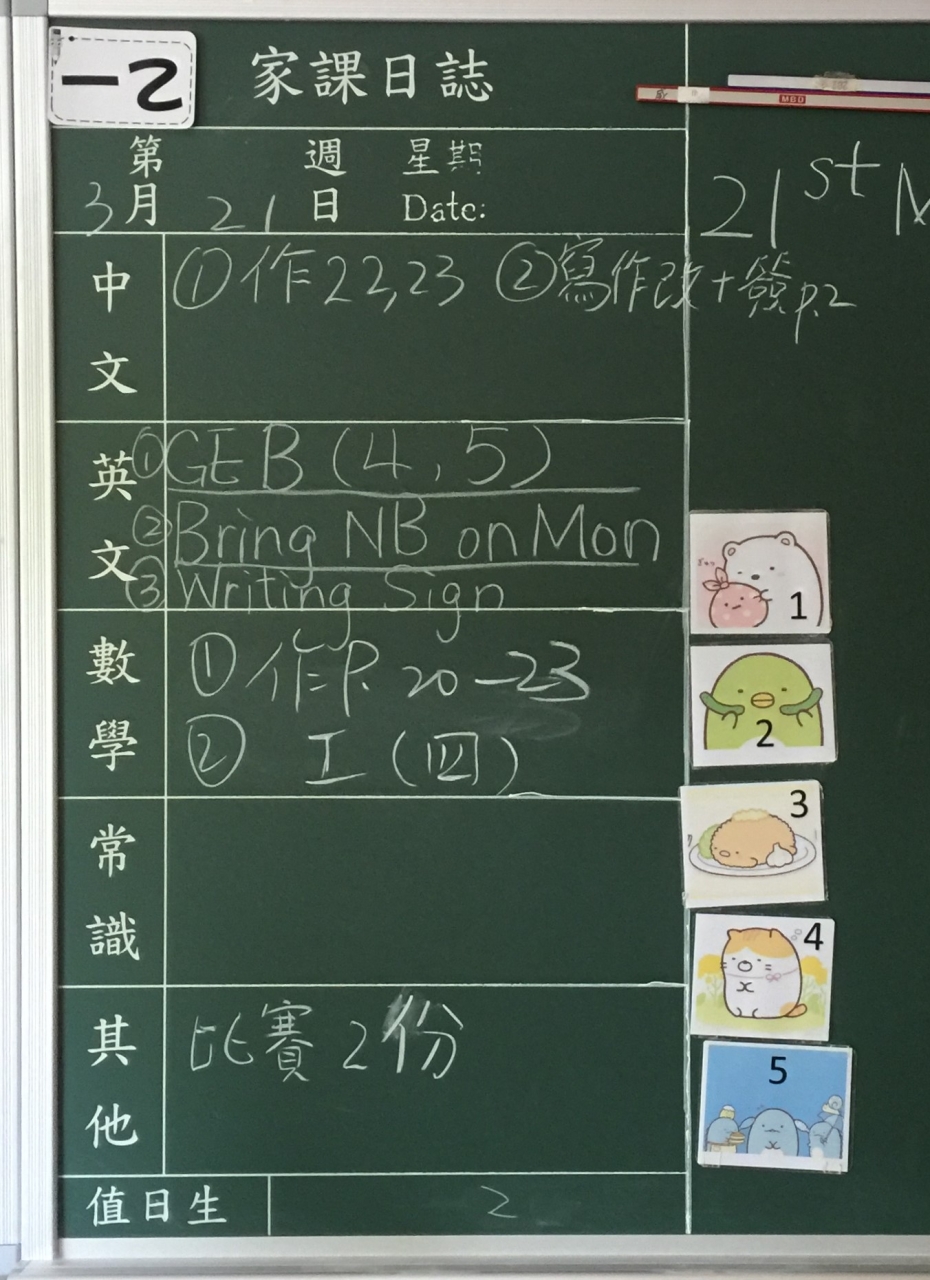 一乙
家課日誌
MBD
第 週 星期
3月 21日 Date:
21st M
中文
①作22,23 ②寫作改+簽p.2
英文
①GE B (4, 5)
②Bring NB on Mon
③Writing Sign
數學
①作P. 20-23
② 工 (四)
常識
其他
比賽 2份
值日生 2
1
2
3
4
5